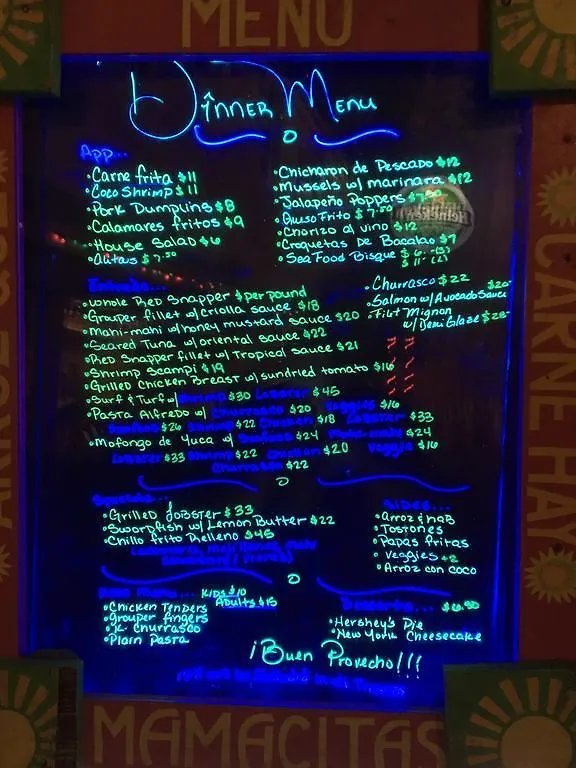 MENU
Dinner Menu
App...
• Carne frita $11
• Coco Shrimp $11
• Pork Dumplins $8
• Calamares fritos $9
• House Salad $6
• Alitas $7.50
• Chicharon de Pescado $12
• Mussels w/ marinara $12
• Jalapeño Poppers $7.50
• Queso Frito $7.50
• Chorizo al vino $12
• Croquetas De Bacalao $9
• Sea Food Bisque $6
$11
Heineken
• Whole Red Snapper $ per pound
• Grouper fillet w/ criolla sauce $18
• Mahi-mahi w/ honey mustard sauce $20
• Seared Tuna w/ oriental sauce $22
• Red Snapper fillet w/ Tropical sauce $21
• Shrimp Scampi $19
• Grilled Chicken Breast w/ sundried tomato $16
• Surf & Turf w/ Shrimp $30 Lobster $45
• Pasta Alfredo w/ Churrasco $20 Veggies $16
Seafood $26 Shrimp $22 Chicken $18 Lobster $33
• Mofongo de Yuca w/ Seafood $24 Mahi-mahi $24
Lobster $33 Shrimp $22 Chicken $20 Veggie $16
Churrasco $22
• Churrasco $22
• Salmon w/ Avocado Sauce $20
• Filet Mignon
w/ Demi Glaze $28
Specials...
• Grilled Lobster $33
• Swordfish w/ Lemon Butter $22
• Chillo frito Relleno $45
Sides...
• Arroz & hab
• Tostones
• Papas fritas
• Veggies +2
• Arroz con coco
Kids Menu... Kids $10
Adults $15
• Chicken Tenders
• Grouper fingers
• K. Churrasco
• Plain Pasta
Desserts... $6.50
• Hershey's Pie
• New York Cheesecake
¡Buen Provecho!!!
CARNE HAY
MAMACITAS